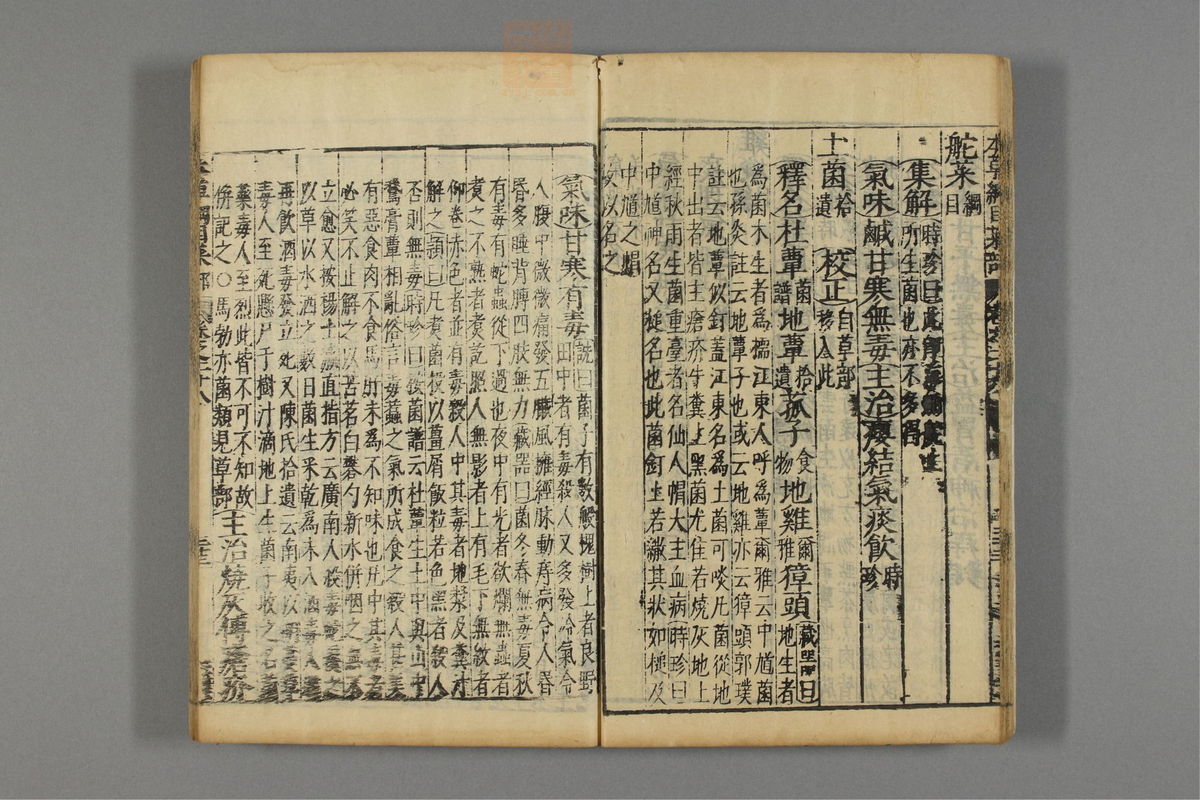 本草綱目菜部
舵菜綱目
集解時珍曰此
所生菌也亦不多得
氣味鹹甘寒無毒主治癭結氣痰飲時珍
土菌拾遺校正自草部移入此
釋名杜蕈菌譜地蕈拾遺菰子食物地雞爾雅獐頭藏器曰地生者
為菌木生者為檽江東人呼為蕈爾雅云中馗菌
也孫炎註云地蕈子也或云地雞亦云獐頭郭璞
註云地蕈似釘蓋江東名為土菌可啖凡菌從地
中出者皆主瘡疥牛糞上黑菌尤佳若燒灰地上
經秋雨生菌重臺者名仙人帽大主血病時珍曰
中馗神名又槌名也此菌釘上若繖其狀如槌及
中馗之帽
故以名之
氣味甘寒有毒詵曰菌子有數般槐樹上者良野
田中者有毒殺人又多發冷氣令
人腹中微微痛發五臟風擁經脉動痔病令人昏
昏多睡背膊四肢無力藏器曰菌冬春無毒夏秋
有毒有蛇蟲從下過也夜中有光者欲爛無蟲者
煮之不熟者煮訖照人無影者上有毛下無紋者
仰卷赤色者並有毒殺人中其毒者地漿及糞汁
解之頴曰凡煮菌投以薑屑飯粒若色黑者殺人
否則無毒時珍曰按菌譜云杜蕈生土中與山中
鵞膏蕈相亂俗言毒蠚之氣所成食之殺人
有惡食肉不食馬肝未為不知味也凡中其毒者
必笑不止解之以苦茗白礬勺新水併咽之無不
立愈又按楊士瀛直指方云廣南人殺毒蛇覆之
以草以水洒之數日菌生采乾為末入酒毒人
再飲酒毒發立死又陳氏拾遺云南夷以
毒人至死懸尸于樹汁滴地上生菌子收之名菌
藥毒人至烈此皆不可不知故
併記之〇馬勃亦菌類見草部主治燒灰傅瘡疥